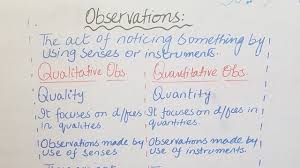 Observations:
The act of noticing something by
using senses or instruments.
Qualitative Obs. Quantitative Obs.
Quality Quantity
It focuses on d/fces It focuses on d/fces in
in qualities. quantities.
Observations made by Observations made by
use of senses use of instruments.